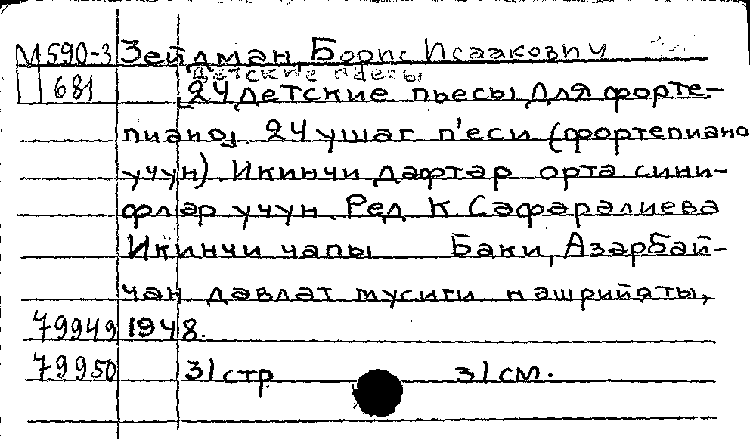 М590-3 Зейдман, Борис Исаакович
Детские пьесы
681 [24 детские пьесы для форте-
пиано] 24 ушаг п'еси (фортепиано
учун). Икинчи дафтар орта сини-
флар учун. Ред. К. Сафаралиева
Икинчи чапы Баки, Азарбай-
чан давлат мусиги нашрийаты,
79949 1948.
79950 31 стр 31 см.